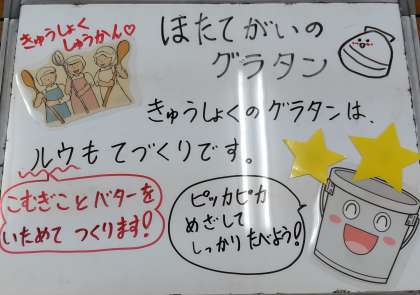 きゅうしょく
しゅうかん♡
ほたてがいの
グラタン
きゅうしょくのグラタンは、
ルウもてづくりです。
こむぎことバターを
いためて つくります!
ピッカピカ
めざして
しっかり たべよう!